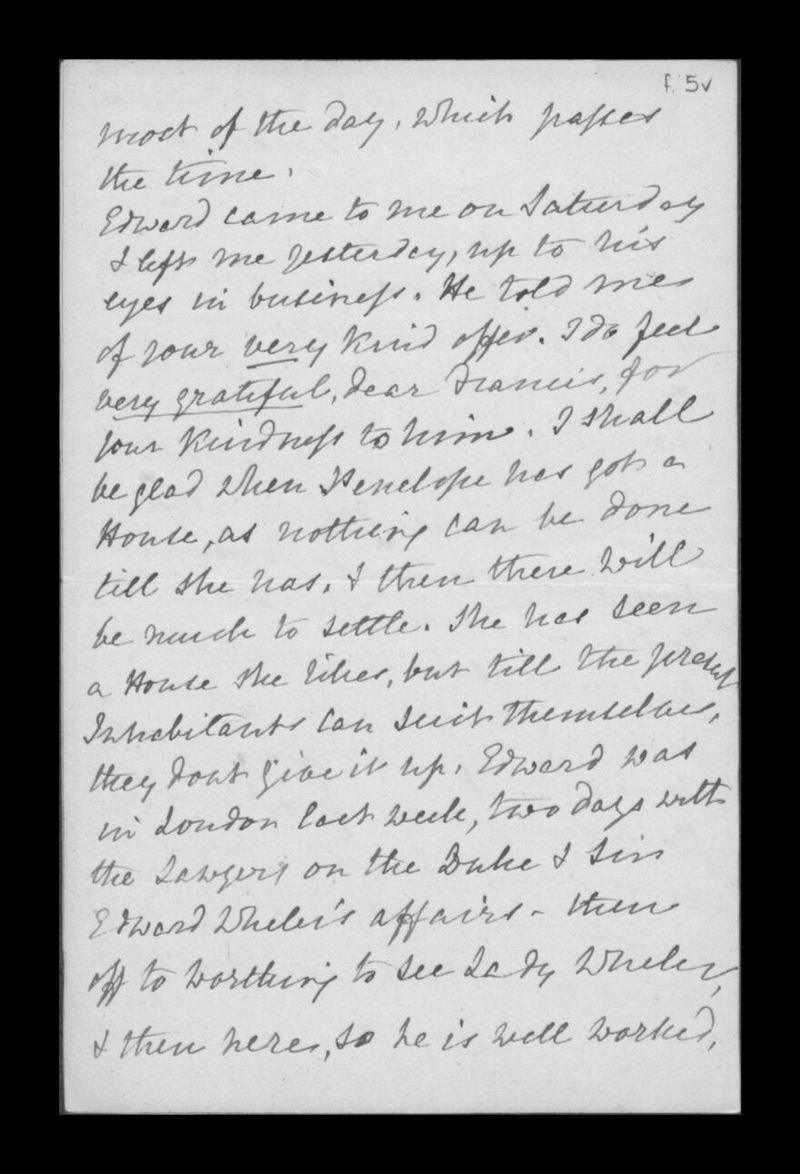 f. 5v
most of the day, which passes
the time.
Edward came to me on Saturday
& left me yesterday, up to his
eyes in business. He told me
of your very kind offer. I do feel
very grateful, dear Francis, for
your kindness to him. I shall
be glad when Penelope has got a
House, as nothing can be done
till she has, & then there will
be much to settle. She has seen
a House she likes, but till the present
Inhabitants can suit themselves,
they dont give it up. Edward was
in London last week, two days with
the Lawyers on the Duke & Sir
Edward Wheler's affairs - then
off to Worthing to see Lady Wheler,
& then here, so he is well worked,